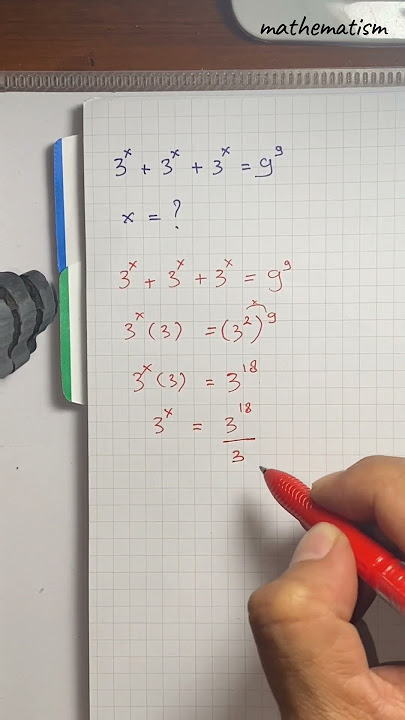 mathematism
3ˣ + 3ˣ + 3ˣ = 9⁹
x = ?
3ˣ + 3ˣ + 3ˣ = 9⁹
3ˣ (3) = (3²)⁹
3ˣ (3) = 3¹⁸
3ˣ = 3¹⁸/3